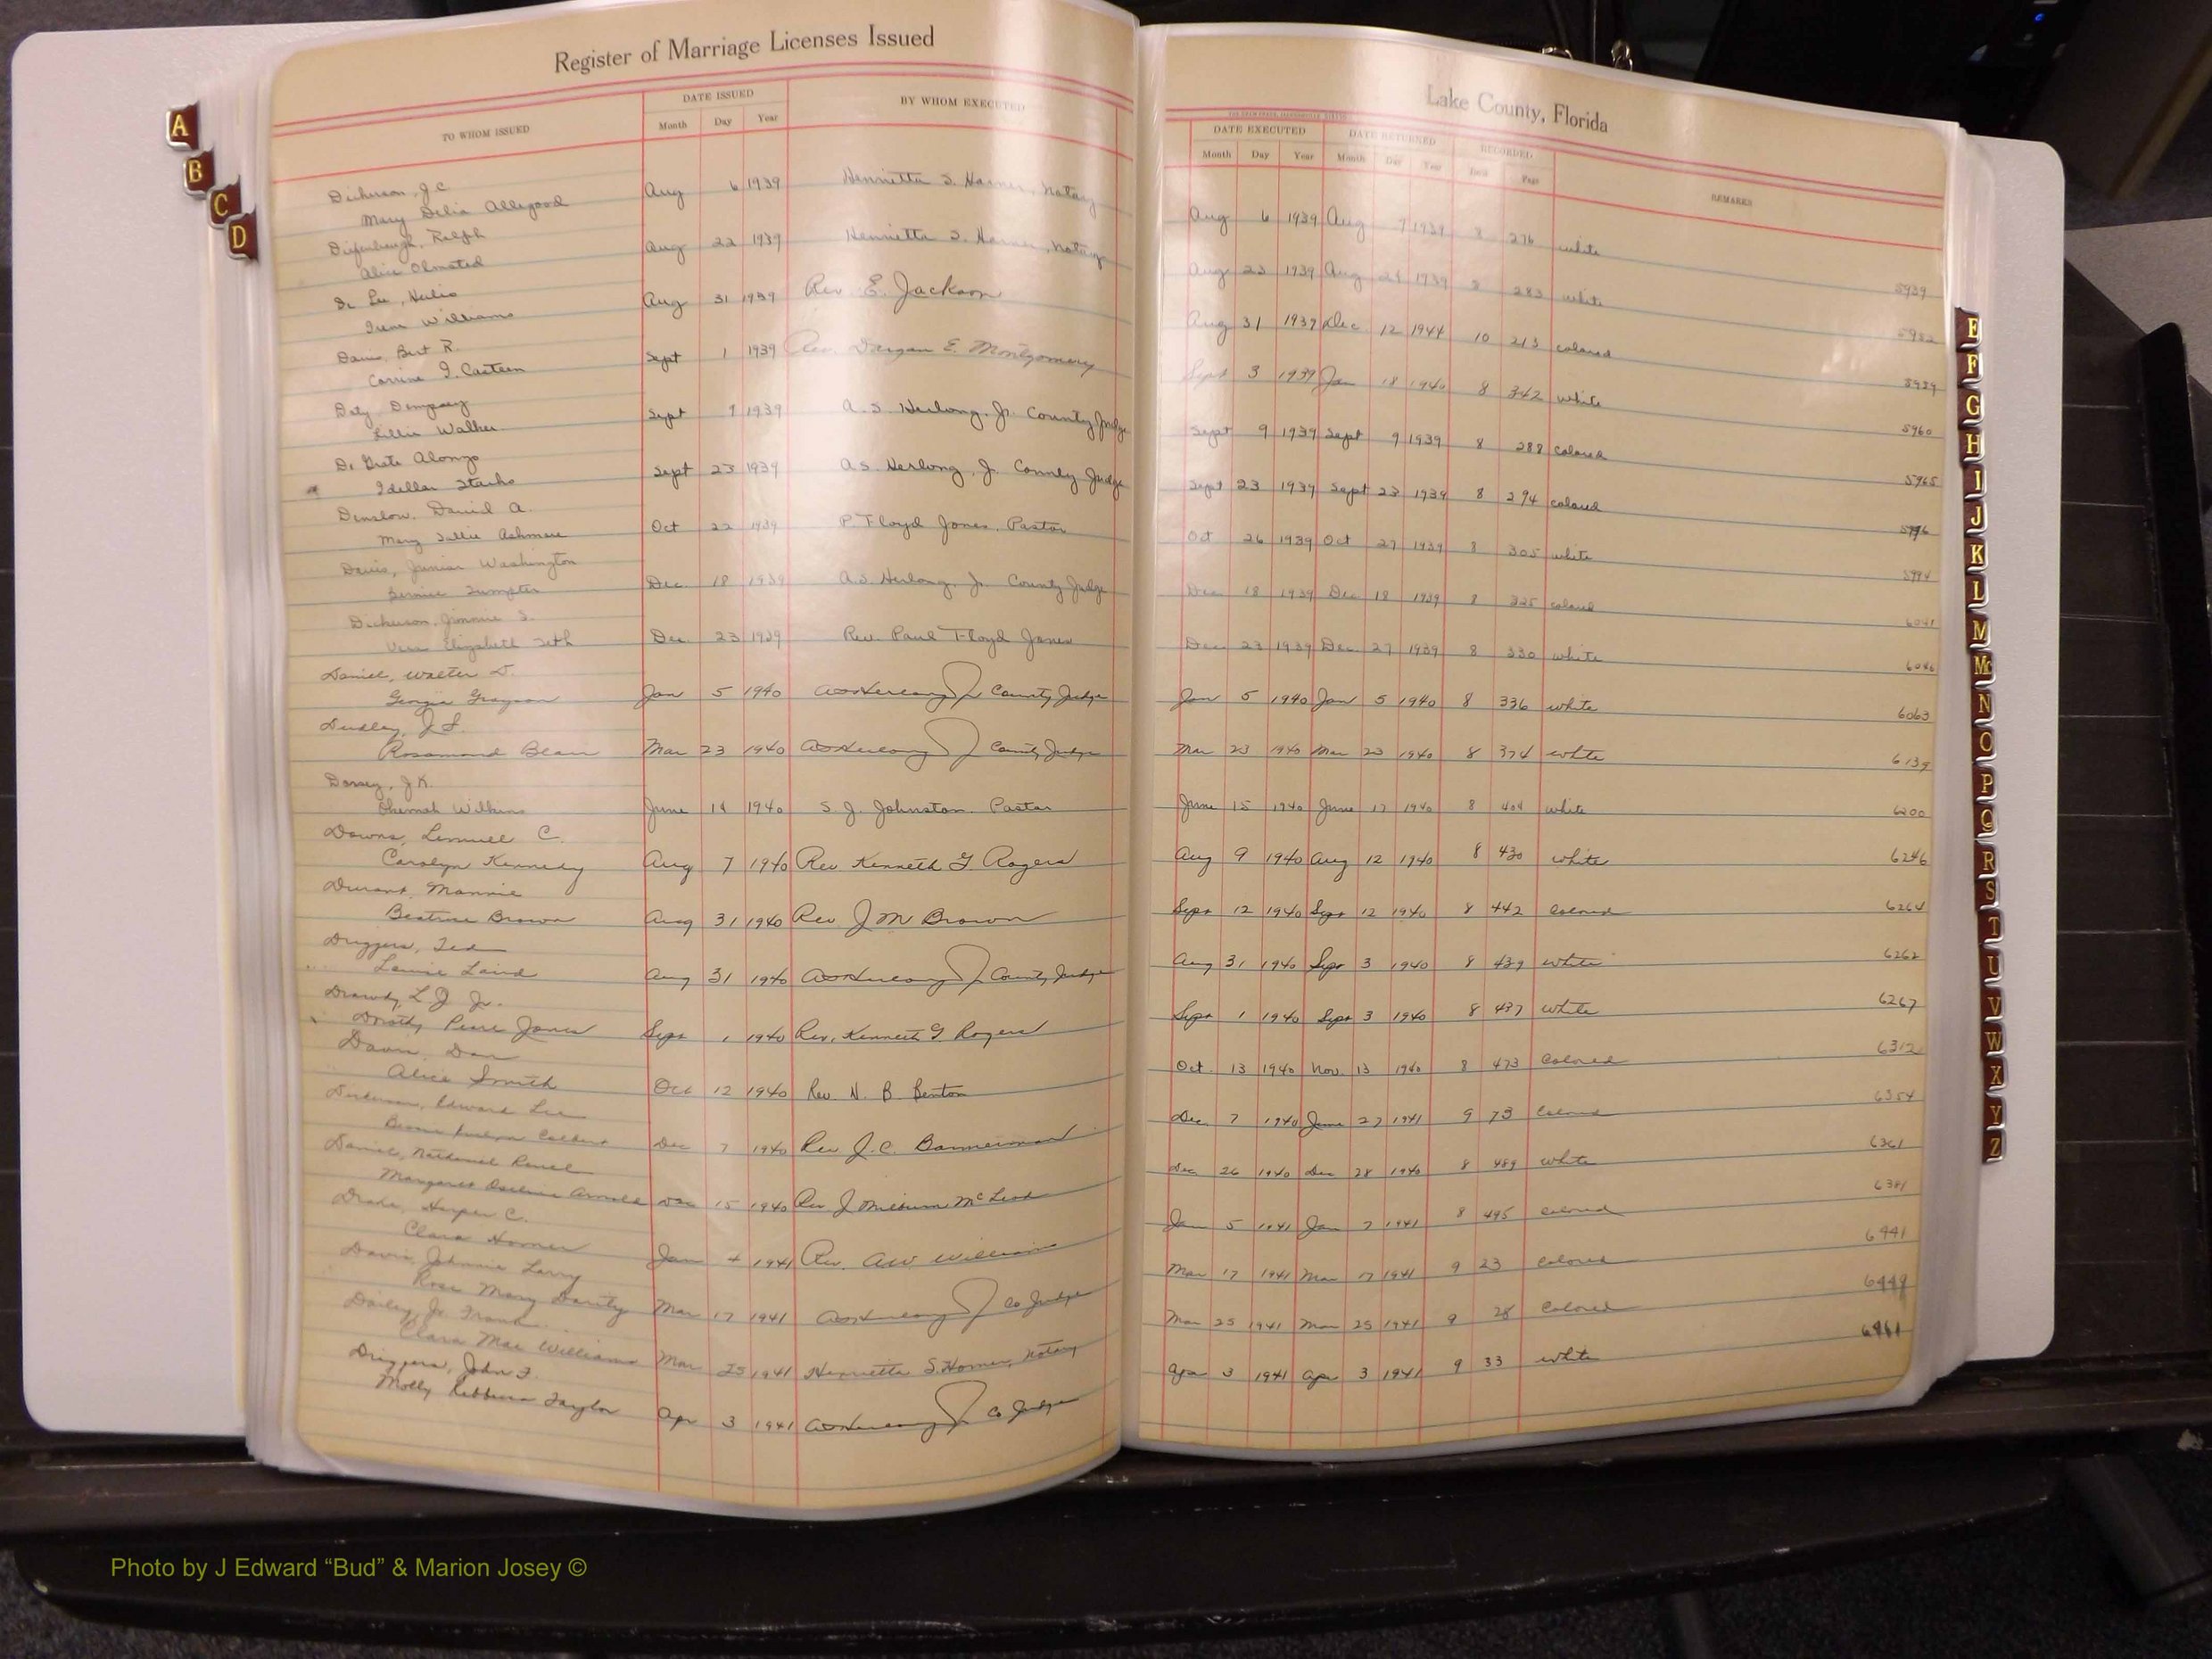 Register of Marriage Licenses Issued
TO WHOM ISSUED DATE ISSUED Month Day Year BY WHOM EXECUTED
Dickerson, J.C. Aug 6 1939 Henrietta S. Harner, Notary
Mary Delia Allegood
Diefenbaugh, Ralph Aug 22 1939 Henrietta S. Harner, Notary
Alice Olmsted
De Lee, Aug 31 1939 Rev. E. Jackson
Irene Williams
Davis, Bert R. Sept 1 1939 Rev. E. Montgomery
Corrine I. Casteen
Daly, Dempsey Sept 9 1939 A.S. Herlong, Jr. County Judge
Lillie Walker
De Grate Alonzo Sept 23 1939 A.S. Herlong, Jr. County Judge
Idellar Starks
Denslow, David A. Oct 22 1939 P. Floyd Jones, Pastor
Mary Sallie Ashmore
Davis, Junior Washington Dec 18 1939 A.S. Herlong, Jr. County Judge
Bernice Sumpter
Dickerson, Jimmie S. Dec 23 1939 Rev. Paul Floyd Jones
Vera Elizabeth
Daniel, Walter Jan 5 1940 A S Herlong Jr County Judge
Georgia Grayson
Dudley, J. Mar 23 1940 A S Herlong Jr County Judge
Rosamond Bean
Dorsey, J K June 14 1940 S. J. Johnston. Pastor
Wilkins
Downs, Lemuel C. Aug 7 1940 Rev Kenneth G. Rogers
Carolyn Kennedy
Durant, Mannie Aug 31 1940 Rev J M Brown
Beatrice Brown
Driggers, Ted Aug 31 1940 A S Herlong Jr County Judge
Laird
Drawdy, L. J. Jr. Sept 1 1940 Rev. Kenneth G Rogers
Dorothy Pearl Jones
Dan Oct 12 1940 Rev N. B Benton
Alice Smith
Dickerson, Edward Lee Dec 7 1940 Rev J. C. Bannerman
Colbert
Daniel, Nathaniel Dec 15 1940 Rev J Milburn McLeod
Margaret Arnold
Drake, Harper C. Jan 4 1941 Rev. A W Williams
Clara Horner
Davis, Johnnie Larry Mar 17 1941 A S Herlong Jr Co Judge
Rose Mary Dority
Dailey, Jr. Frank Mar 25 1941 Henrietta S. Horner, Notary
Clara Mae Williams
Driggers, John F. Apr 3 1941 A S Herlong Jr Co Judge
Molly Rebbecca Taylor
Lake County, Florida
DATE EXECUTED DATE RETURNED RECORDED REMARKS
Month Day Year Month Day Year Book Page
Aug 6 1939 Aug 7 1939 8 276 white 5939
Aug 23 1939 Aug 24 1939 8 283 white 5952
Aug 31 1939 Dec. 12 1944 10 213 colored 5959
Sept 3 1939 Jan 18 1940 8 342 white 5960
Sept 9 1939 Sept 9 1939 8 288 colored 5965
Sept 23 1939 Sept 23 1939 8 294 colored 5976
Oct 26 1939 Oct 27 1939 8 305 white 5994
Dec 18 1939 Dec 18 1939 8 325 colored 6041
Dec 23 1939 Dec 27 1939 8 330 white 6046
Jan 5 1940 Jan 5 1940 8 336 white 6063
Mar 23 1940 Mar 23 1940 8 374 white 6139
June 15 1940 June 17 1940 8 404 white 6200
Aug 9 1940 Aug 12 1940 8 430 white 6246
Sept 12 1940 Sept 12 1940 8 442 Colored 6264
Aug 31 1940 Sept 3 1940 8 439 white 6262
Sept 1 1940 Sept 3 1940 8 437 white 6267
Oct. 13 1940 Nov. 13 1940 8 473 Colored 6312
Dec. 7 1940 June 27 1941 9 73 Colored 6354
Dec 26 1940 Dec 28 1940 8 489 white 6361
Jan 5 1941 Jan 7 1941 8 495 colored 6381
Mar 17 1941 Mar 17 1941 9 23 Colored 6441
Mar 25 1941 Mar 25 1941 9 28 Colored 6449
Apr 3 1941 Apr 3 1941 9 33 white 6461
A
B
C
D
E
F
G
H
I
J
K
L
M
Mc
N
O
P
Q
R
S
T
U
V
W
X
Y
Z
Photo by J Edward “Bud” & Marion Josey ©